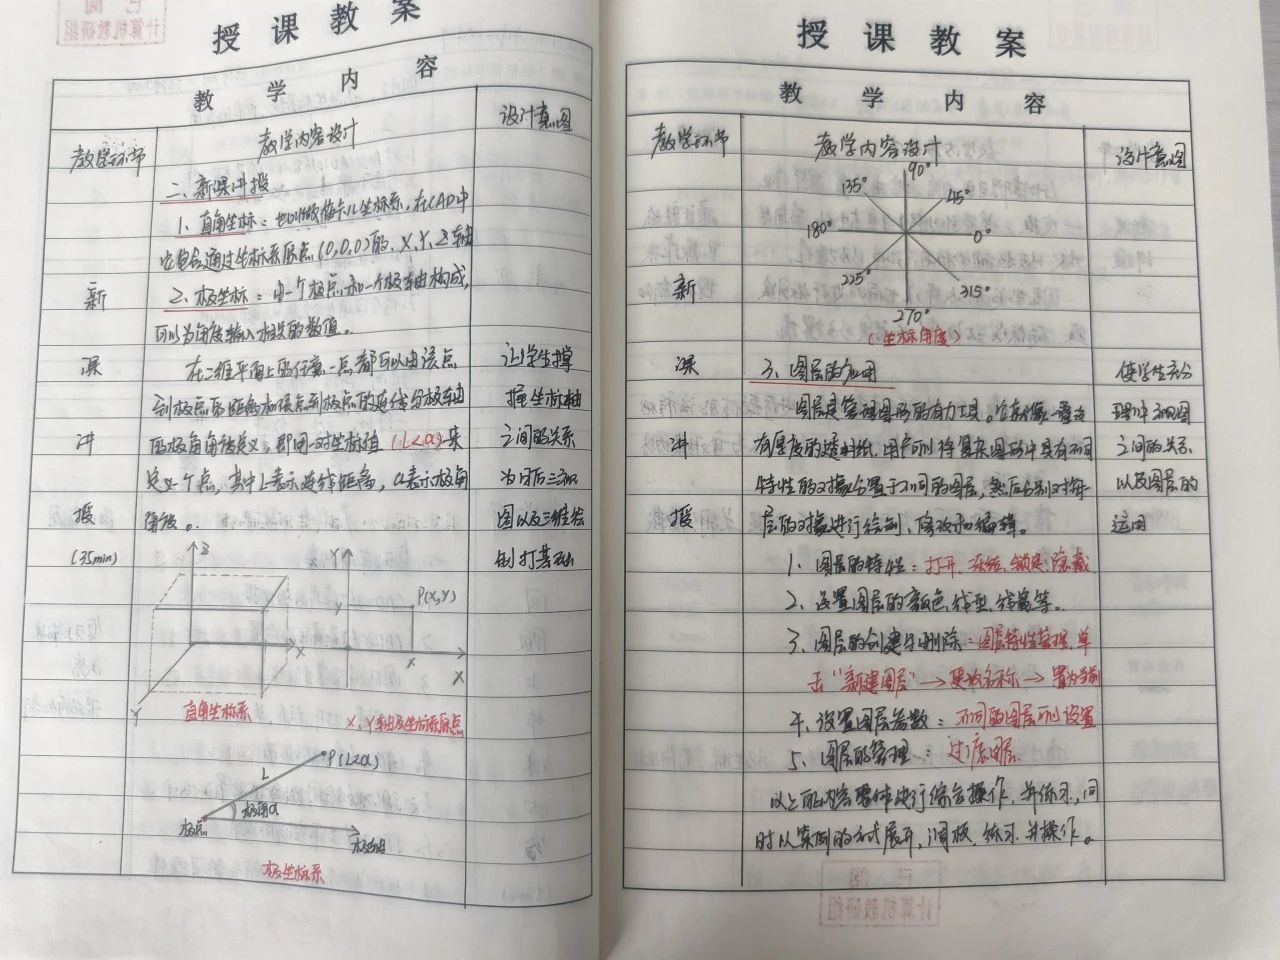 授课教案
教学内容
教学环节
教学内容设计
设计意图
二、新课讲授
1、直角坐标：也叫做笛卡儿坐标系，在CAD中
它包含通过坐标系原点(0,0,0)的，X,Y,Z轴
2、极坐标：由一个极点和一个极轴构成，
可以为角度输入相关的数值。
在二维平面上的任意一点都可以由该点
到极点的距离和该点到极点的连线与极轴
的极角角度定义，即用一对坐标值(L<α)来
定义一个点，其中L表示连线距离，α表示极角
角度。
新
课
讲
授
(35min)
让学生掌
握坐标轴
之间的关系
为日后三视
图以及三维绘
制打基础
Z
X
Y
直角坐标系
Y
Y
P(X,Y)
X
X
X、Y轴及坐标系原点
P(L<α)
L
极角α
极点
极轴
极坐标系
授课教案
教学内容
教学环节
教学内容设计
设计意图
90°
135°
45°
180°
0°
225°
315°
270°
(坐标角度)
3、图层的应用
图层是管理图形的有力工具。它好像一叠没
有厚度的透明纸，用户可以将复杂图形中具有不同
特性的对象分置于不同的图层，然后分别对每
层的对象进行绘制、修改和编辑。
1、图层的特性：打开、冻结、锁定、隐藏
2、设置图层的颜色、线型、线宽等。
3、图层的创建与删除：图层特性管理，单
击“新建图层”→更改名称→置为当前
4、设置图层参数：不同的图层可以设置
5、图层的管理：过滤图层
以上的内容要体进行综合操作，并练习，同
时以案例的形式展开，调板，练习，并操作。
新
课
讲
授
使学生充分
理解
之间的关系
以及图层的
运用
计算机教研组
计算机教研组